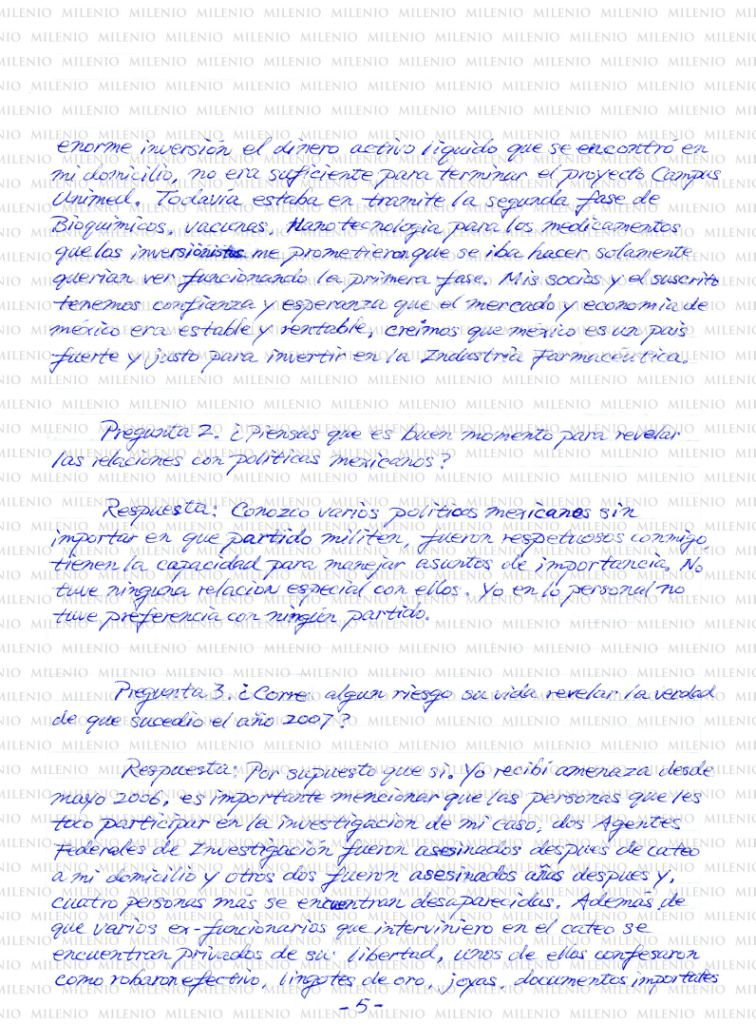 enorme inversión el dinero activo liquido que se encontró en
mi domicilio, no era suficiente para terminar el proyecto Campus
Unimed. Todavía estaba en tramite la segunda fase de
Bioquimicos, vacunas, Nanotecnologia para los medicamentos
que los inversionistas me prometieron que se iba hacer, solamente
querian ver funcionando la primera fase. Mis socios y el suscrito
tenemos confianza y esperanza que el mercado y economia de
méxico era estable y rentable, creímos que méxico es un pais
fuerte y justo para invertir en la Industria Farmacéutica.
Pregunta 2. ¿Piensas que es buen momento para revelar
las relaciones con politicas mexicanos?
Respuesta: Conozco varios politicos mexicanos sin
importar en que partido militen, fueron respetuosos conmigo,
tienen la capacidad para manejar asuntos de importancia. No
tuve ninguna relación especial con ellos. Yo en lo personal no
tuve preferencia con ningún partido.
Pregunta 3. ¿Corre algun riesgo su vida revelar la verdad
de que sucedio el año 2007?
Respuesta: Por supuesto que si. Yo recibí amenaza desde
mayo 2006, es importante mencionar que las personas que les
toco participar en la investigación de mi caso, dos Agentes
Federales de Investigación fueron asesinados despues de cateo
a mi domicilio y otros dos fueron asesinados años despues y,
cuatro personas mas se encuentran desaparecidas. Además de
que varios ex-funcionarios que interviniero en el cateo se
encuentran privados de su libertad, unos de ellos confesaron
como robaron efectivo, lingotes de oro, joyas, documentos importates
-5-